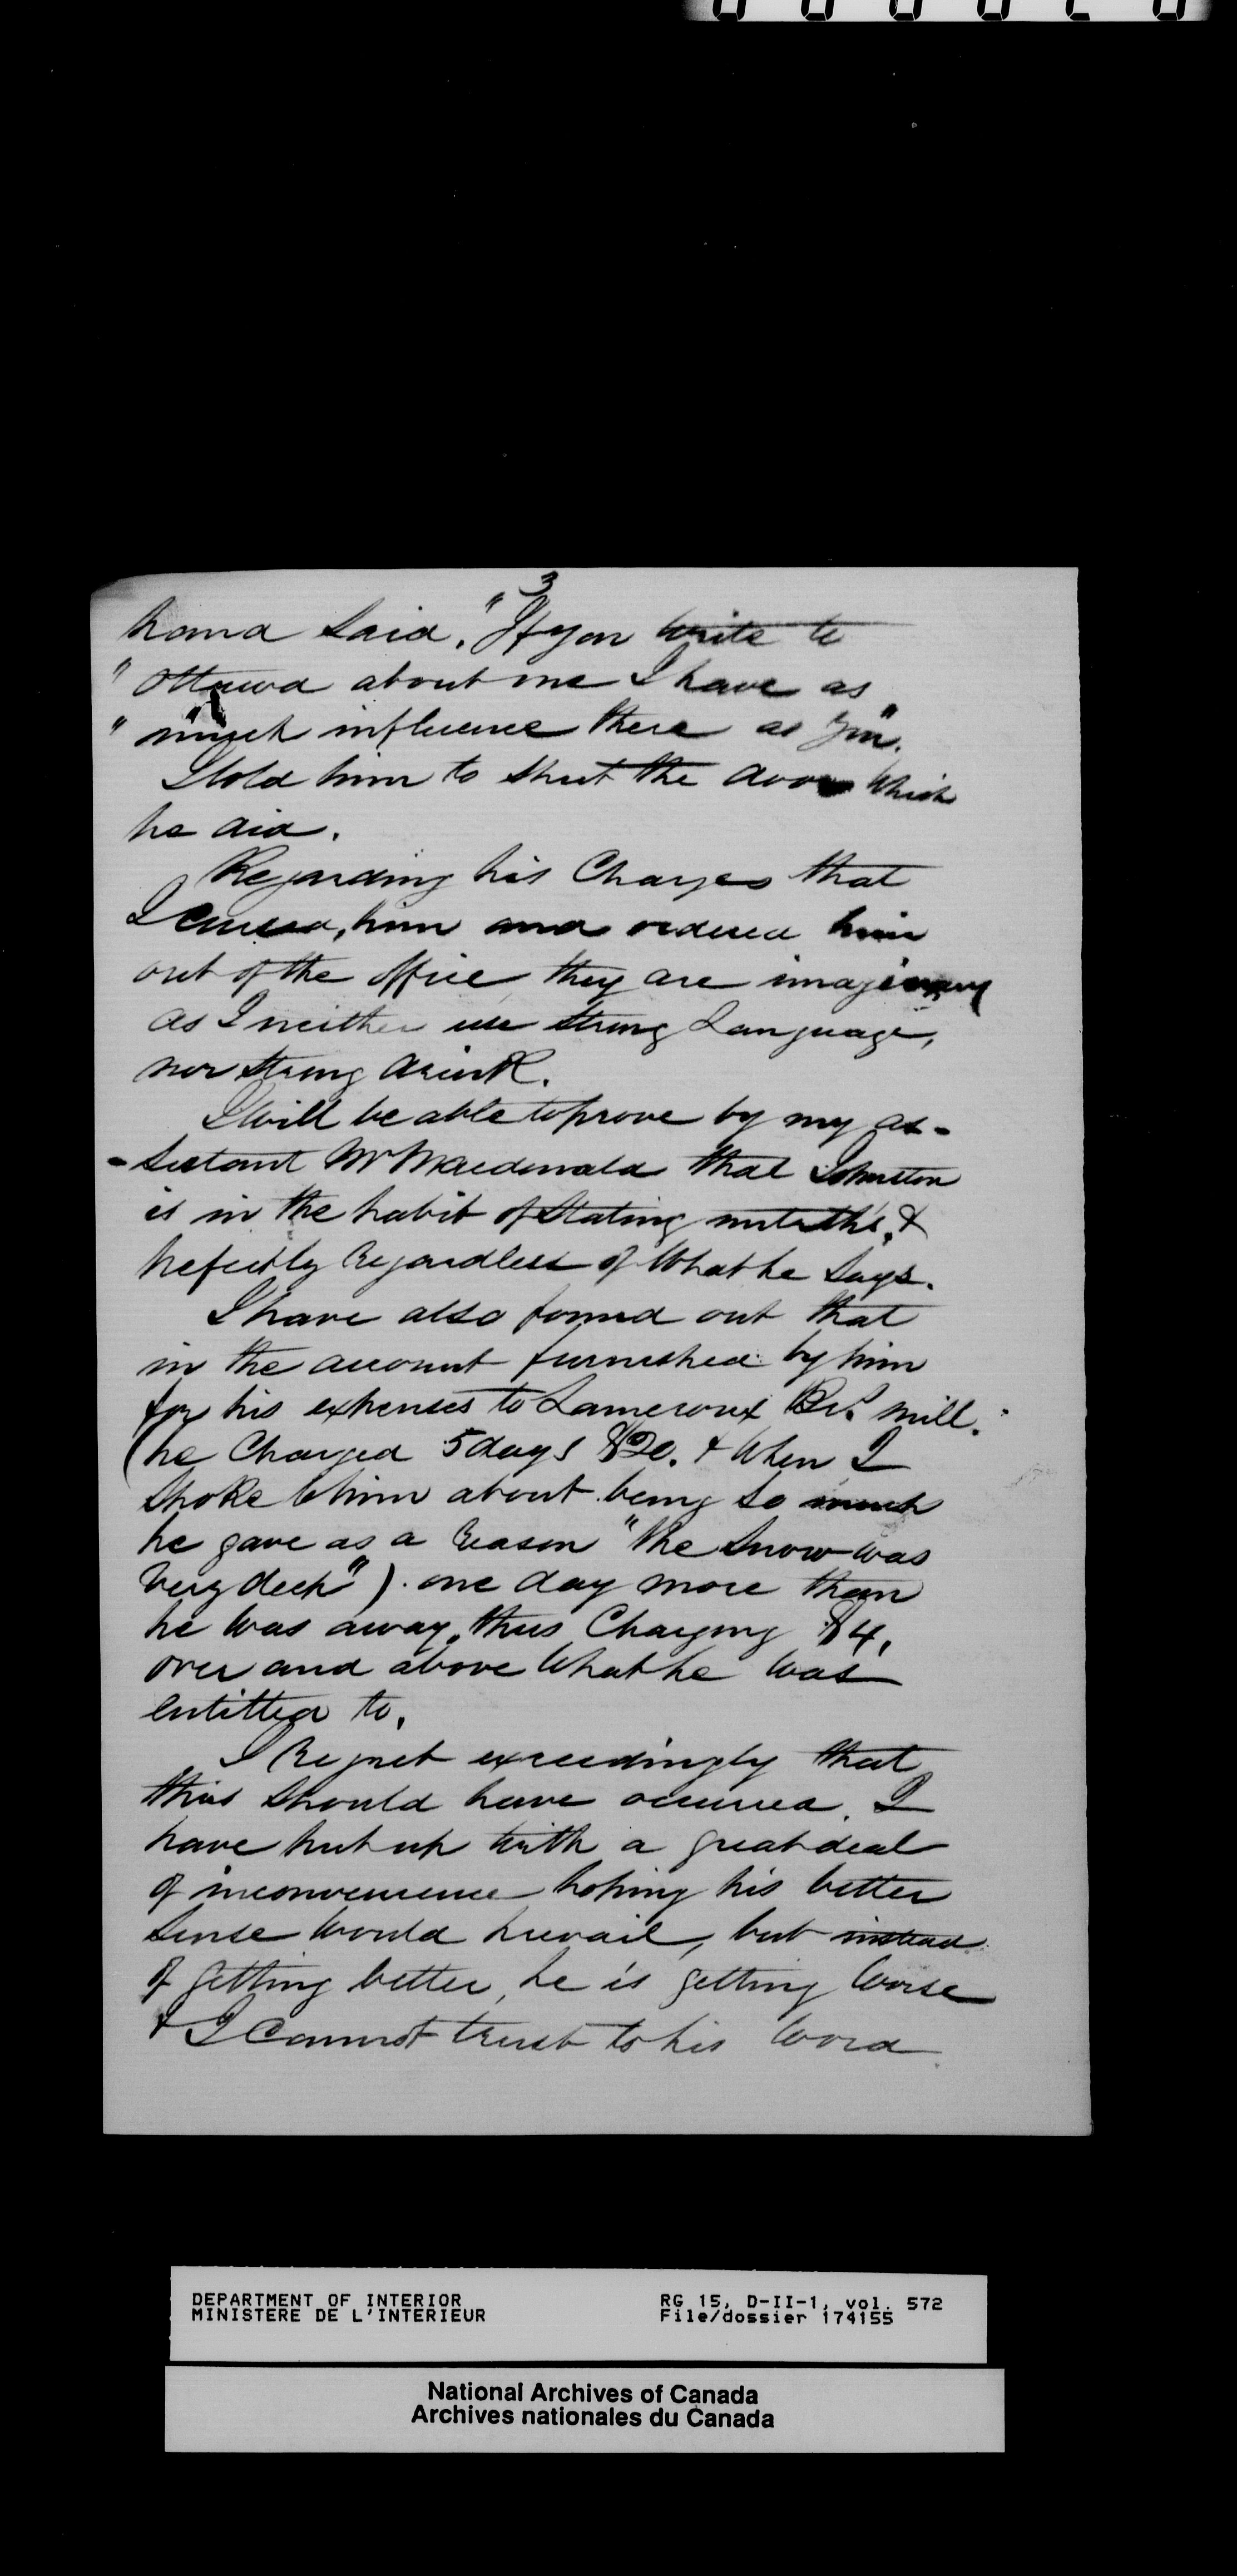 3
hand said. "If you write to
" Ottawa about me I have as
" much influence there as you".
I told him to shut the door which
he did.
Regarding his Charges that
I cursed, him and ordered him
out of the office, they are imaginary
as I neither use strong Language,
nor strong drink.
I will be able to prove by my as-
-sistant Mr Macdonald that Johnston
is in the habit of stating untruths, &
perfectly regardless of what he says.
I have also found out that
in the account furnished by him
for his expenses to Lameroux Brs. mill.
(he Charged 5 days $20. & when I
spoke to him about being so much
he gave as a reason "the snow was
very deep"). one day more than
he was away, thus Charging $4,
over and above what he was
entitled to.
I regret exceedingly that
this should have occurred. I
have put up with a great deal
of inconvenience hoping his better
sense would prevail, but instead
of getting better, he is getting worse
& I cannot trust to his word
DEPARTMENT OF INTERIOR RG 15, D-II-1, vol. 572
MINISTERE DE L'INTERIEUR File/dossier 174155
National Archives of Canada
Archives nationales du Canada